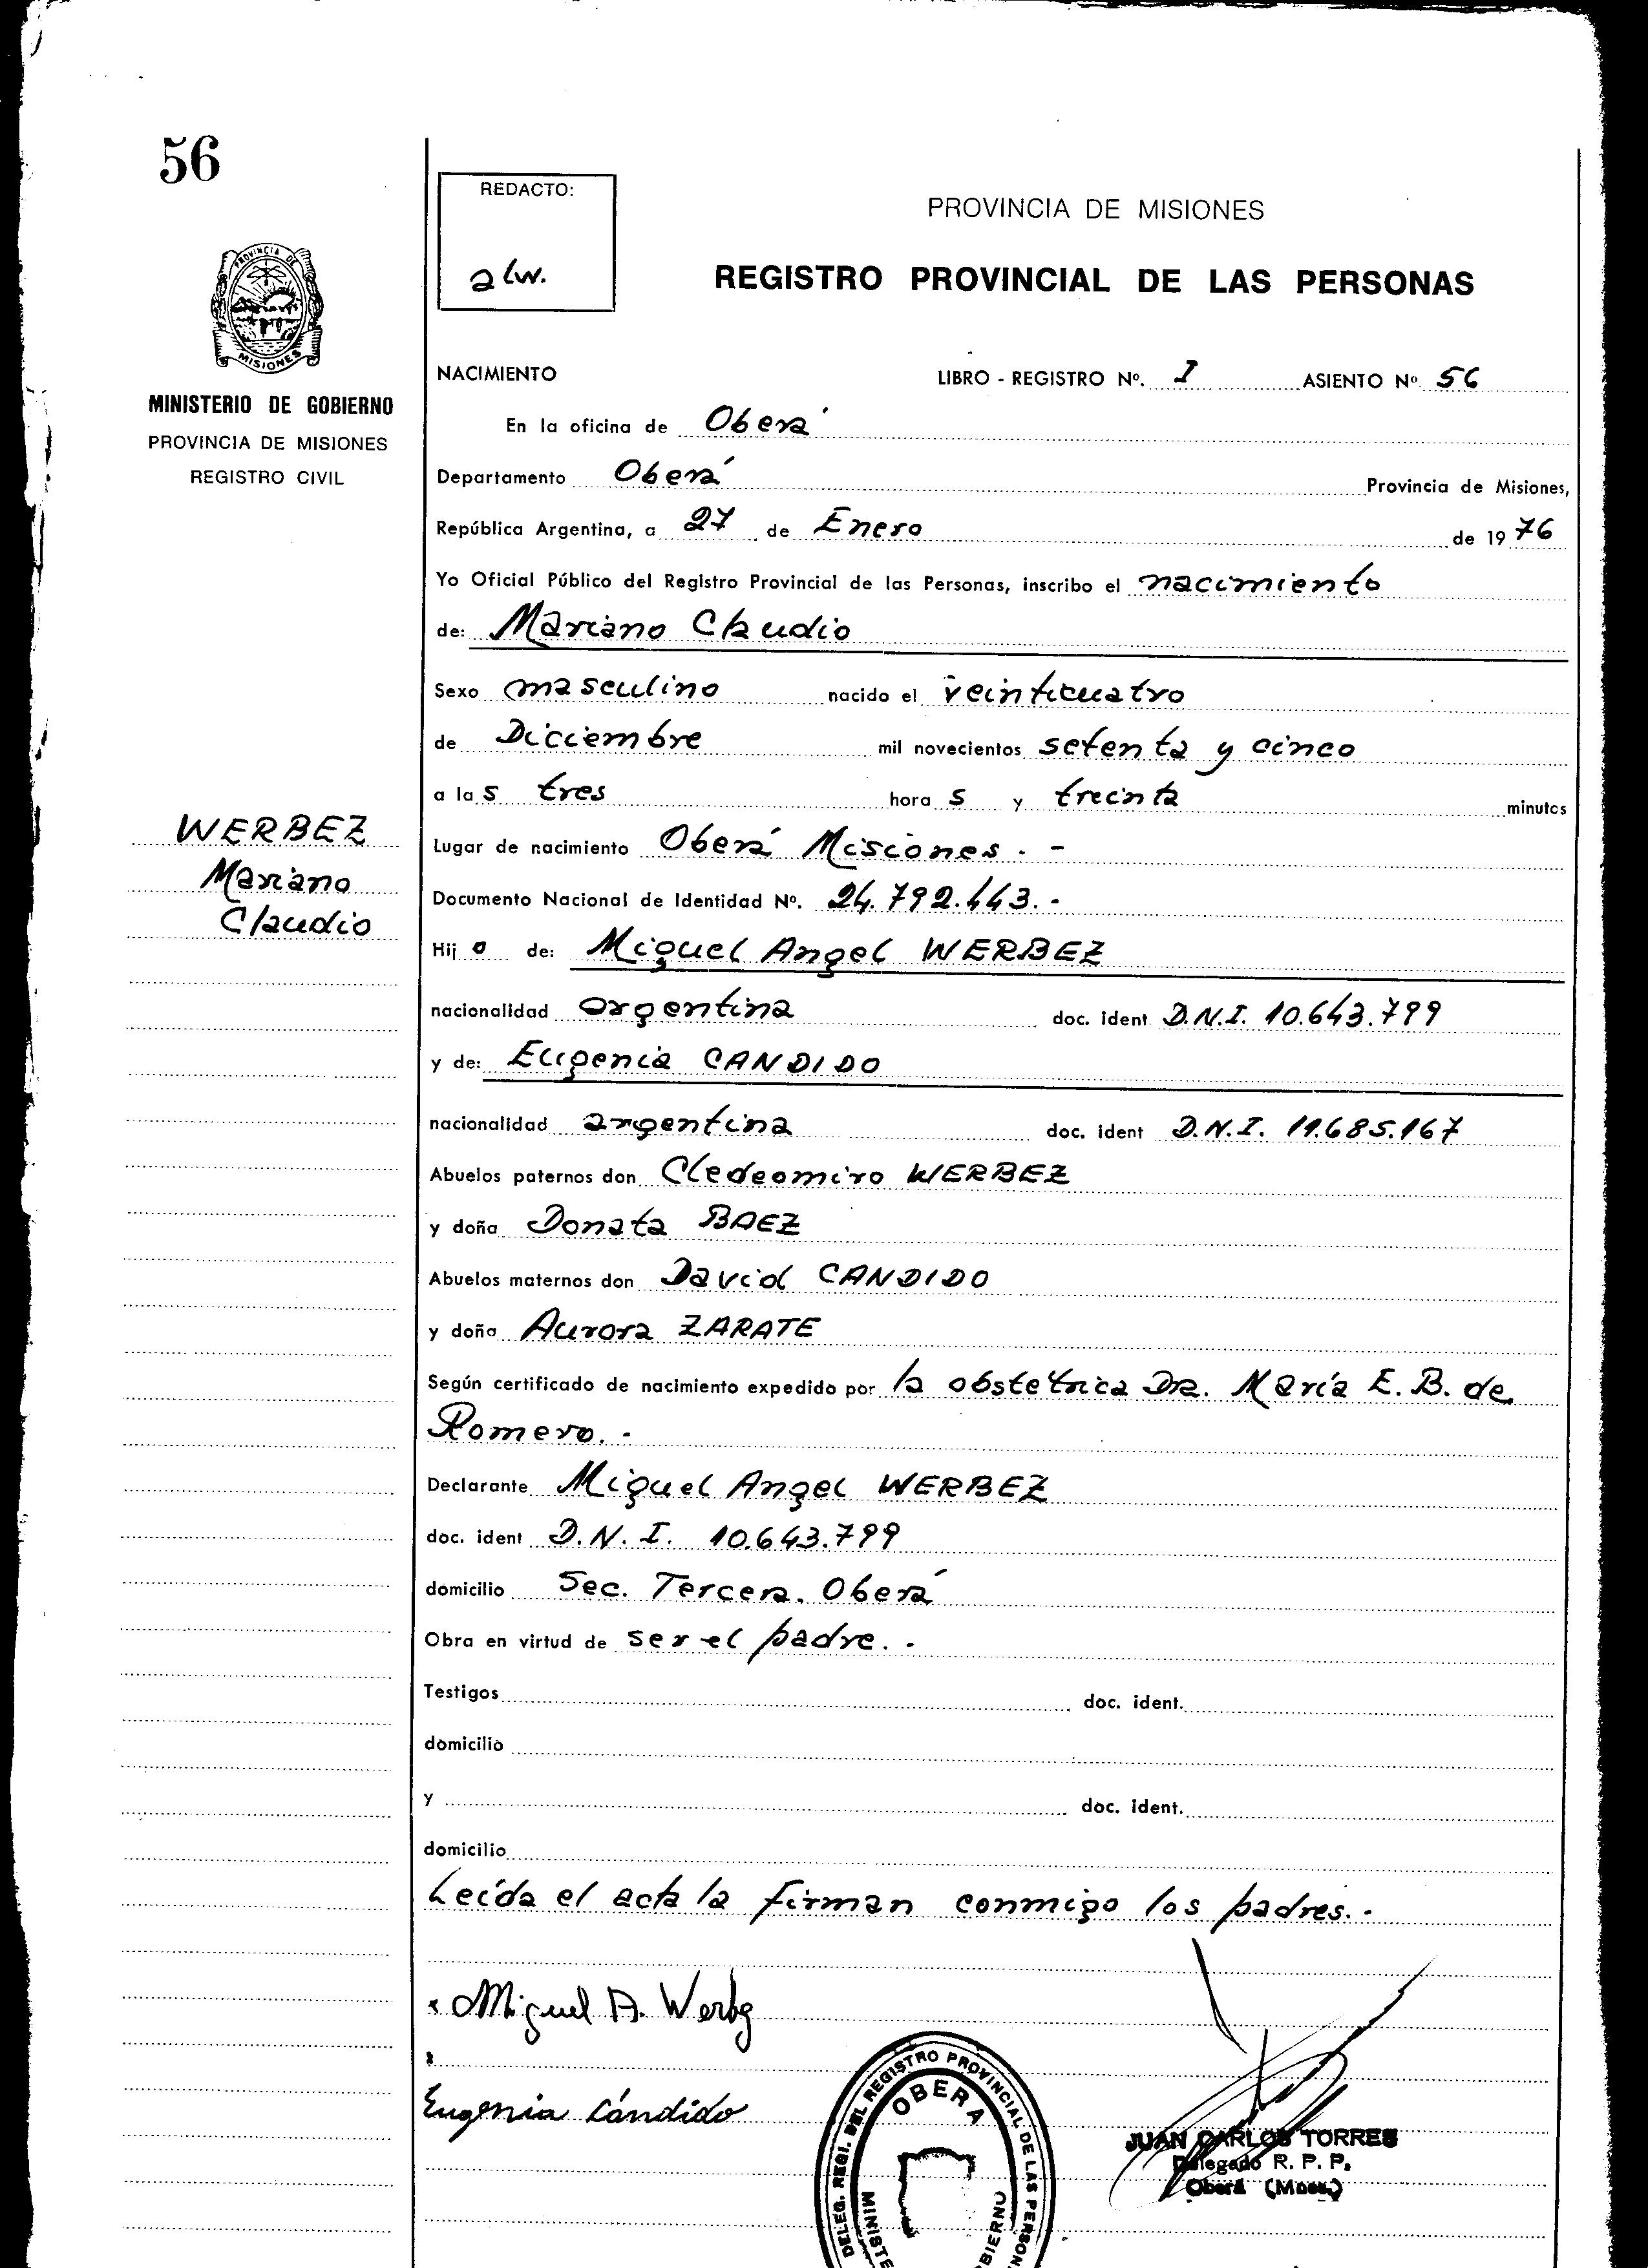 56
REDACTO:
alw.
PROVINCIA DE MISIONES
REGISTRO PROVINCIAL DE LAS PERSONAS
PROVINCIA DE
MISIONES
MINISTERIO DE GOBIERNO
PROVINCIA DE MISIONES
REGISTRO CIVIL
NACIMIENTO LIBRO - REGISTRO Nº. I ASIENTO Nº 56
En la oficina de Oberá
Departamento Oberá Provincia de Misiones,
República Argentina, a 27 de Enero de 1976
Yo Oficial Público del Registro Provincial de las Personas, inscribo el nacimiento
de: Mariano Claudio
Sexo masculino nacido el veinticuatro
de Diciembre mil novecientos setenta y cinco
a las tres horas y treinta minutos
WERBEZ
Mariano
Claudio
Lugar de nacimiento Oberá Misiones. -
Documento Nacional de Identidad Nº. 24.792.443. -
Hijo de: Miguel Angel WERBEZ
nacionalidad argentina doc. ident D.N.I. 10.643.799
y de: Eugenia CANDIDO
nacionalidad argentina doc. ident D.N.I. 11.685.167
Abuelos paternos don Cledeomiro WERBEZ
y doña Donata BAEZ
Abuelos maternos don David CANDIDO
y doña Aurora ZARATE
Según certificado de nacimiento expedido por la obstetrica Dra. María E. B. de
Romero. -
Declarante Miguel Angel WERBEZ
doc. ident D.N.I. 10.643.799
domicilio Sec. Tercera. Oberá
Obra en virtud de ser el padre. -
Testigos doc. ident.
domicilio
y doc. ident.
domicilio
Leída el acta la firman conmigo los padres. -
Miguel A. Werbz
Eugenia Cándido
DELEG. REGI. DEL REGISTRO PROVINCIAL DE LAS PERSON
OBERA
MINISTE
OBIERNO
JUAN CARLOS TORRES
Delegado R. P. P.
Oberá (Mnes.)